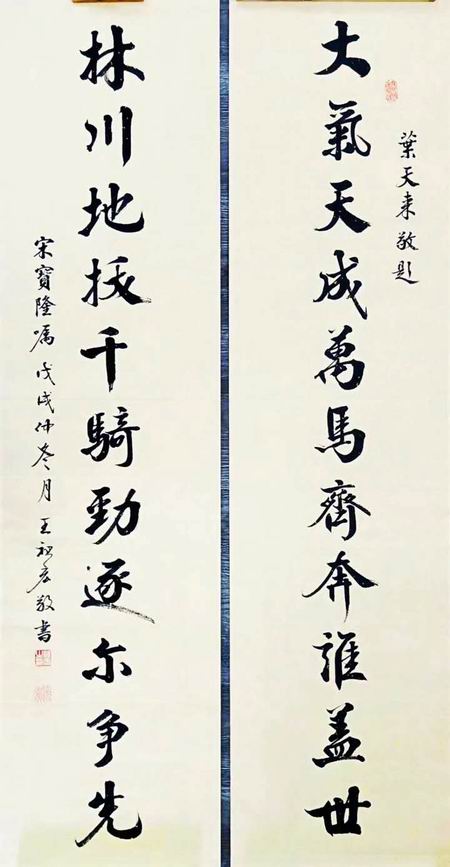 葉天来敬題
大氣天成萬馬齊奔誰盖世
林川地拔千騎勁逐尔争先
宋寶隆嘱 戊戌仲冬月 王敬書